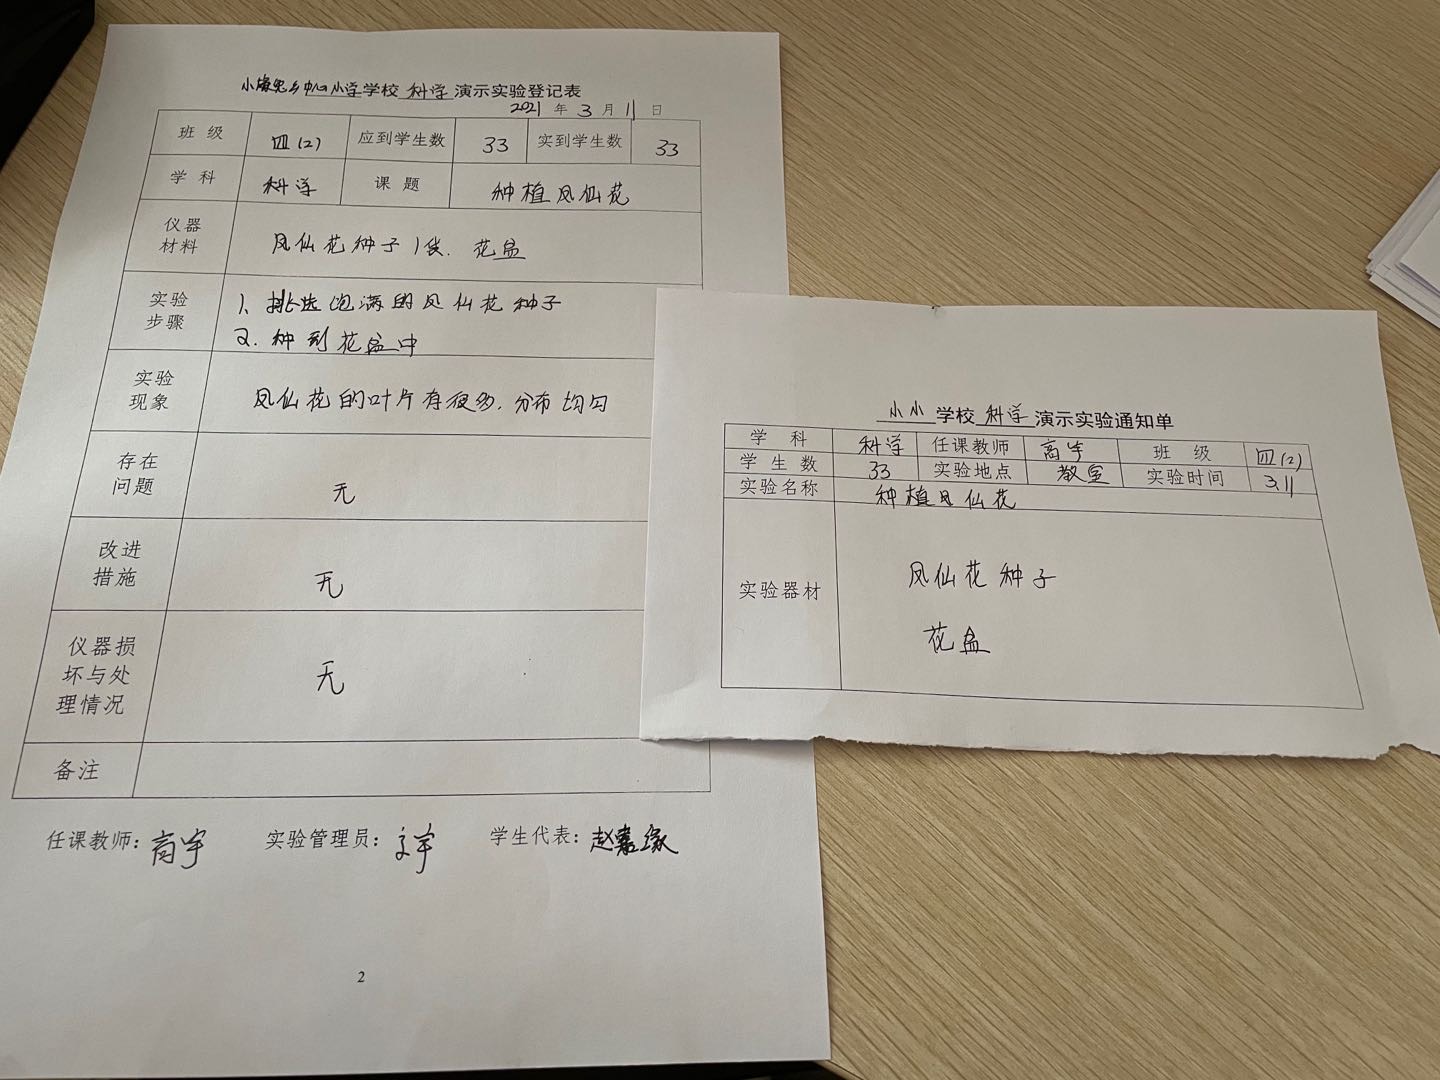 中心小学学校 科学 演示实验登记表
2021 年 3 月 11 日
班 级 四(2) 应到学生数 33 实到学生数 33
学 科 科学 课 题 种植凤仙花
仪器
材料
凤仙花种子1袋. 花盆
实验
步骤
1、挑选饱满的凤仙花种子
2. 种到花盆中
实验
现象
凤仙花的叶片有很多, 分布均匀
存在
问题
无
改进
措施
无
仪器损
坏与处
理情况
无
备注
任课教师: 高宇 实验管理员: 学生代表: 赵嘉缘
2
小小 学校 科学 演示实验通知单
学 科 科学 任课教师 高宇 班 级 四(2)
学 生 数 33 实验地点 教室 实验时间 3.11
实验名称 种植凤仙花
实验器材
凤仙花种子
花盆